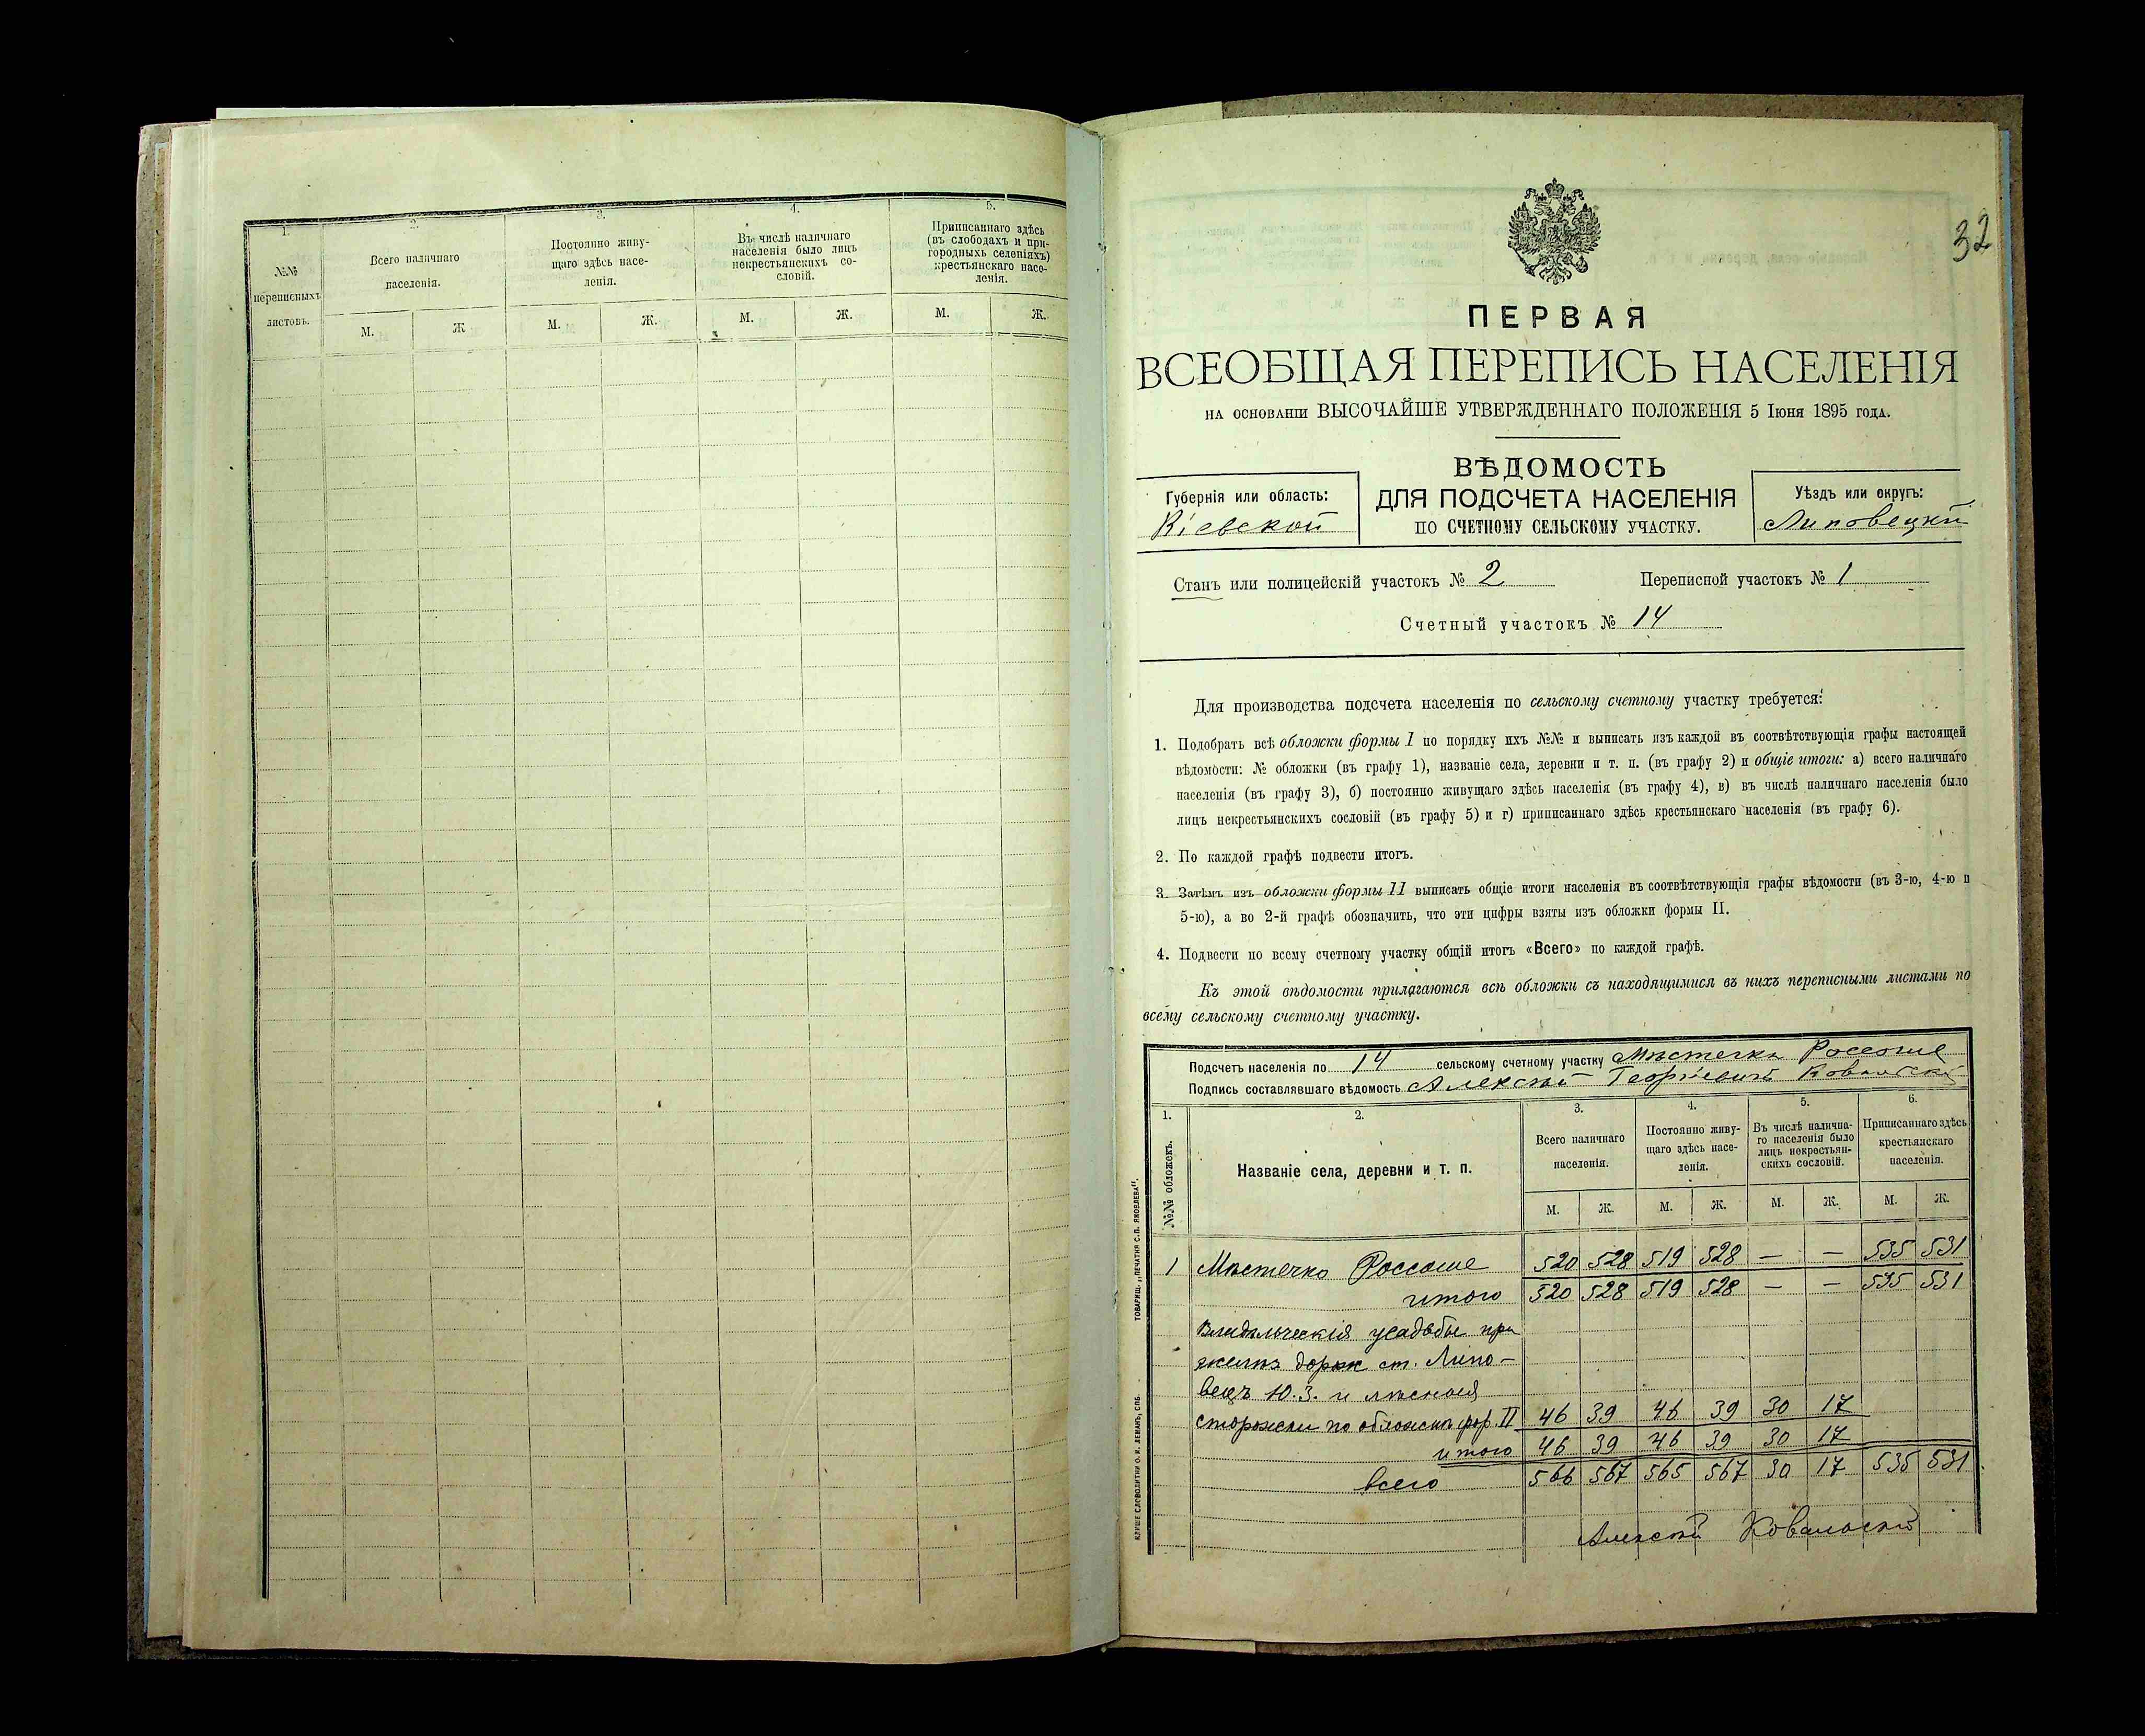 1.
2.
3.
4.
5.
№№
переписныхъ
листовъ.
Всего наличнаго
населенія.
Постоянно живу-
щаго здѣсь насе-
ленія.
Въ числѣ наличнаго
населенія было лицъ
некрестьянскихъ со-
словій.
Приписаннаго здѣсь
(въ слободахъ и при-
городныхъ селеніяхъ)
крестьянскаго насе-
ленія.
М. Ж М. Ж. М. Ж. М. Ж.
32
ПЕРВАЯ
ВСЕОБЩАЯ ПЕРЕПИСЬ НАСЕЛЕНІЯ
НА ОСНОВАНІИ ВЫСОЧАЙШЕ УТВЕРЖДЕННАГО ПОЛОЖЕНІЯ 5 Іюня 1895 ГОДА.
ВѢДОМОСТЬ
ДЛЯ ПОДСЧЕТА НАСЕЛЕНІЯ
ПО СЧЕТНОМУ СЕЛЬСКОМУ УЧАСТКУ.
Губернія или область:
Кіевской
Уѣздъ или округъ:
Липовецкій
Станъ или полицейскій участокъ № 2
Переписной участокъ № 1
Счетный участокъ № 14
Для производства подсчета населенія по сельскому счетному участку требуется:
1. Подобрать всѣ обложки формы I по порядку ихъ №№ и выписать изъ каждой въ соотвѣтствующія графы настоящей
вѣдомости: № обложки (въ графу 1), названіе села, деревни и т. п. (въ графу 2) и общіе итоги: а) всего наличнаго
населенія (въ графу 3), б) постоянно живущаго здѣсь населенія (въ графу 4), в) въ числѣ наличнаго населенія было
лицъ некрестьянскихъ сословій (въ графу 5) и г) приписаннаго здѣсь крестьянскаго населенія (въ графу 6).
2. По каждой графѣ подвести итогъ.
3. Затѣмъ изъ обложки формы II выписать общіе итоги населенія въ соотвѣтствующія графы вѣдомости (въ 3-ю, 4-ю и
5-ю), а во 2-й графѣ обозначить, что эти цифры взяты изъ обложки формы II.
4. Подвести по всему счетному участку общій итогъ «Всего» по каждой графѣ.
Къ этой вѣдомости прилагаются всѣ обложки съ находящимися въ нихъ переписными листами по
всему сельскому счетному участку.
Подсчетъ населенія по 14 сельскому счетному участку Мѣстечка Россоше
Подпись составлявшаго вѣдомость Алексѣй Георгіевичъ Ковальскій
1. 2. 3. 4. 5. 6.
№№ обложекъ.
Названіе села, деревни и т. п.
Всего наличнаго
населенія.
Постоянно живу-
щаго здѣсь насе-
ленія.
Въ числѣ налична-
го населенія было
лицъ некрестьян-
скихъ сословій.
Приписаннаго здѣсь
крестьянскаго
населенія.
М. Ж. М. Ж. М. Ж. М. Ж.
1 Мѣстечко Россоше 520 528 519 528 — — 535 531
итого 520 528 519 528 — — 535 531
Владѣльческія усадьбы при
желѣз дорож ст. Липо-
вецъ Ю.З. и лѣсныя
сторожки по обложкѣ фор. II 46 39 46 39 30 17
итого 46 39 46 39 30 17
всего 566 567 565 567 30 17 535 531
Алексѣй Ковальскій
ТОВАРИЩ. „ПЕЧАТНЯ С.П. ЯКОВЛЕВА".
КЛИШЕ СЛОВОЛИТНИ О. И. ЛЕМАНЪ, СПБ.